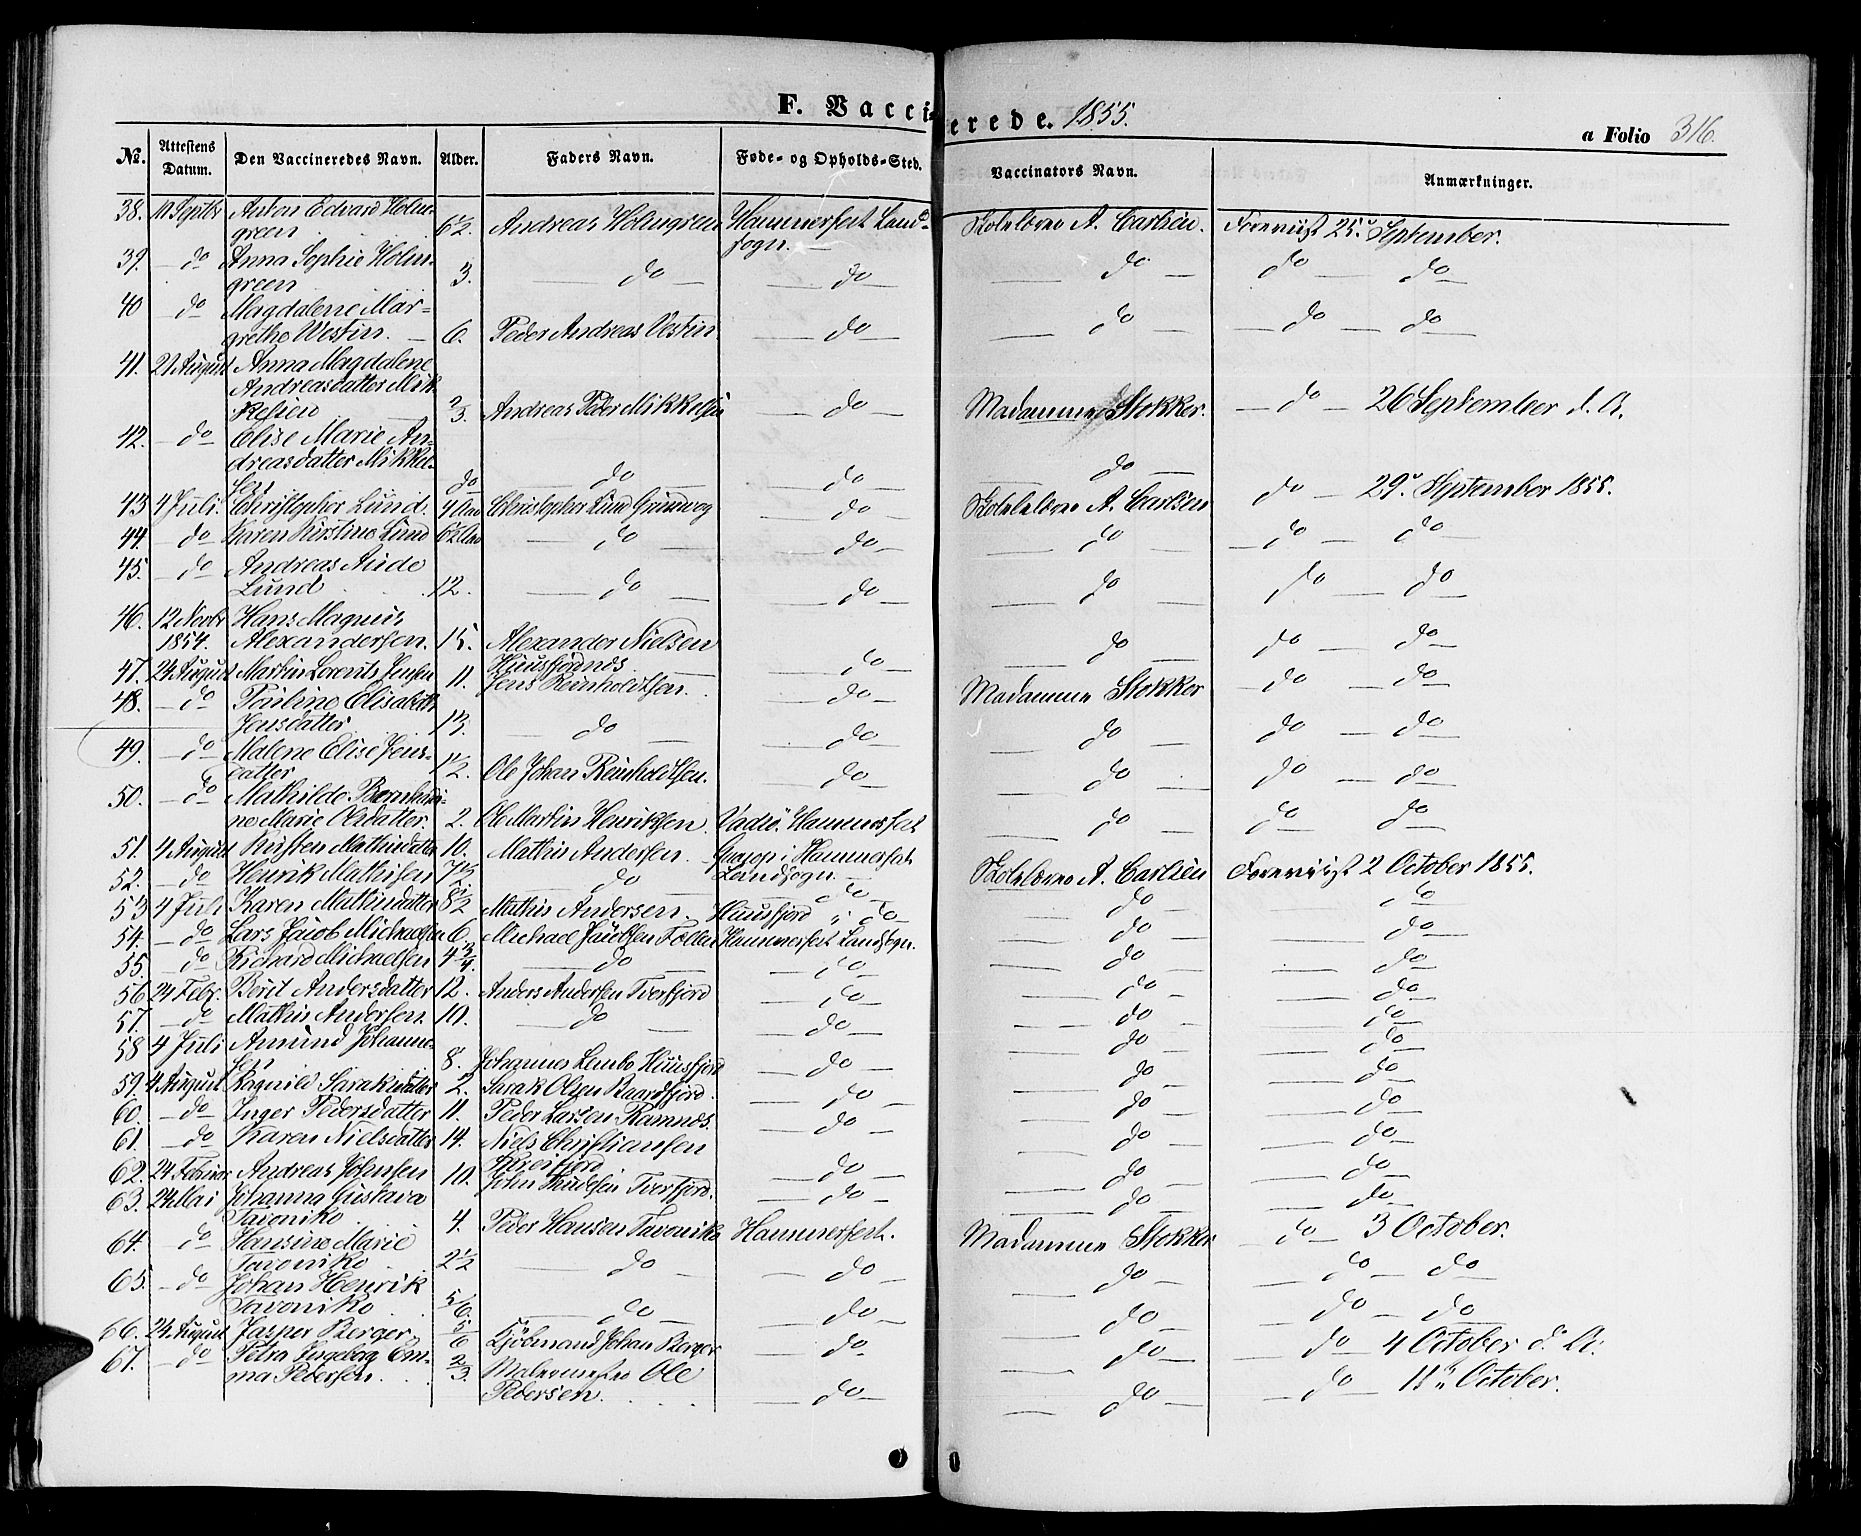 F. Vaccinerede. 1855.
a Folio 316.
No. Attestens Datum. Den Vaccineredes Navn. Alder. Faders Navn. Føde- og Opholds-Sted. Vaccinators Navn. Anmærkninger.
38. 11 Septbr Anton Edvard Holm-
green 6 1/2. Andreas Holmgreen Hammerfest Land-
sogn. Skolelærer A. Carlsen. Foreviist 25. September.
39. do Anna Sophie Holm-
green 3. do do do do do
40 do Magdalene Mar-
grethe Westin. 6. Peder Andreas Vestin. do do do do
41. 21 August Anna Magdalene
Andreasdatter Mik
kelsen 2/3. Andreas Peder Mikkelsen do Madamme Stokker. do 26 September d. A.
42. do Elise Marie An-
dreasdatter Mikkel-
sen do do do do
43 4 Juli. Christopher Lund. 4 Aar Christopher Lund do Skolelærer A. Carlsen do 29. September 1855.
44. do Karen Kirstine Lund 6 1/2 Aar do do do do do
45. do Andreas
Lund 12. do do do do do
46. 12 Novbr Hans Magnus
1854. Alexandersen. 15. Alexander Nielsen
Huusfjordnes do do do do
47. 24 August Martin Lorents Jensen 11. Jens Reinholdtsen. do Madamme Stokker do do
48. do Pauline Elisabeth
Jensdatter 1 1/3. do do do do do
49. do Malene Elise Jens-
datter 1 1/2. Ole Johan Reinholdtsen. do do do do
50. do Mathilde Bernhardi-
ne Marie Olsdatter. 2. Ole Martin Henriksen. Vadsö. Hammerfest do do do
51. 4 August Kirsten Mathisdatter 10. Mathis Andersen. i Hammerfest
Landsogn. Skolelærer A. Carlsen Foreviist 2 October 1855.
52. do Henrik Mathisen do do do do
53 4 Juli Karen Mathisdatter 8 1/2 Mathis Andersen. Huusfjord i do do do
54. do Lars Jacob Michaelsen 6. Michael Jacobsen Hammerfest Landsogn. do do
55. do Richard Michaelsen do do do do
56 24 Febr. Berit Andersdatter 12. Anders Andersen Tverfjord do do do
57. do Mathis Andersen. 10. do do do do
58 4 Juli Amund Johanne-
sen 8. Johannes Huusfjord do do do
59. 4 August Ragnild Saraksdatter 2. Sarak Olsen Baardfjord. do do do
60. do Inger Pedersdatter 11. Peder Larsen Ramnes. do do do
61. do Karen Nielsdatter 14. Niels Christiansen
do do do
62. 24 Februar Andreas Johnsen 10. John Tverfjord. do do do
63. 24 Mai Johanna Gustava
Tavoniko 4. Peder Hansen Tavoniko Hammerfest. Madamme Stokker do 3 October.
64. do Hansine Marie
Tavoniko 2 1/2 do do do do do
65. do Johan Henrik
Tavoniko 5/6. do do do do do
66. 24 August Jasper Berger 5/6 Kjöbmand Johan Berger do do do 4 October d. A.
67. do Petra Ingeborg Em-
ma Pedersen. 2/3. Malermester Ole
Pedersen. do do do 11 October.